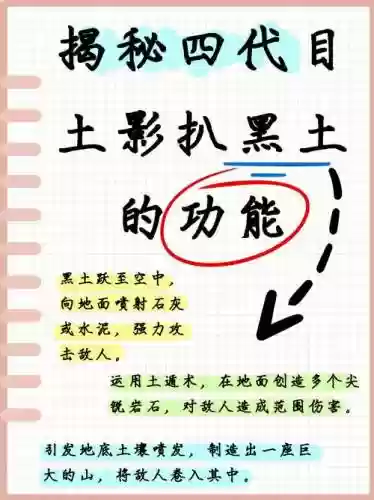 揭秘四代目
土影扒黑土
的功能
黑土跃至空中,
向地面喷射石灰
或水泥,强力攻
击敌人。
运用土遁术,在地面创造多个尖
锐岩石,对敌人造成范围伤害。
引发地底土壤喷发,制造出一座巨
大的山,将敌人卷入其中。